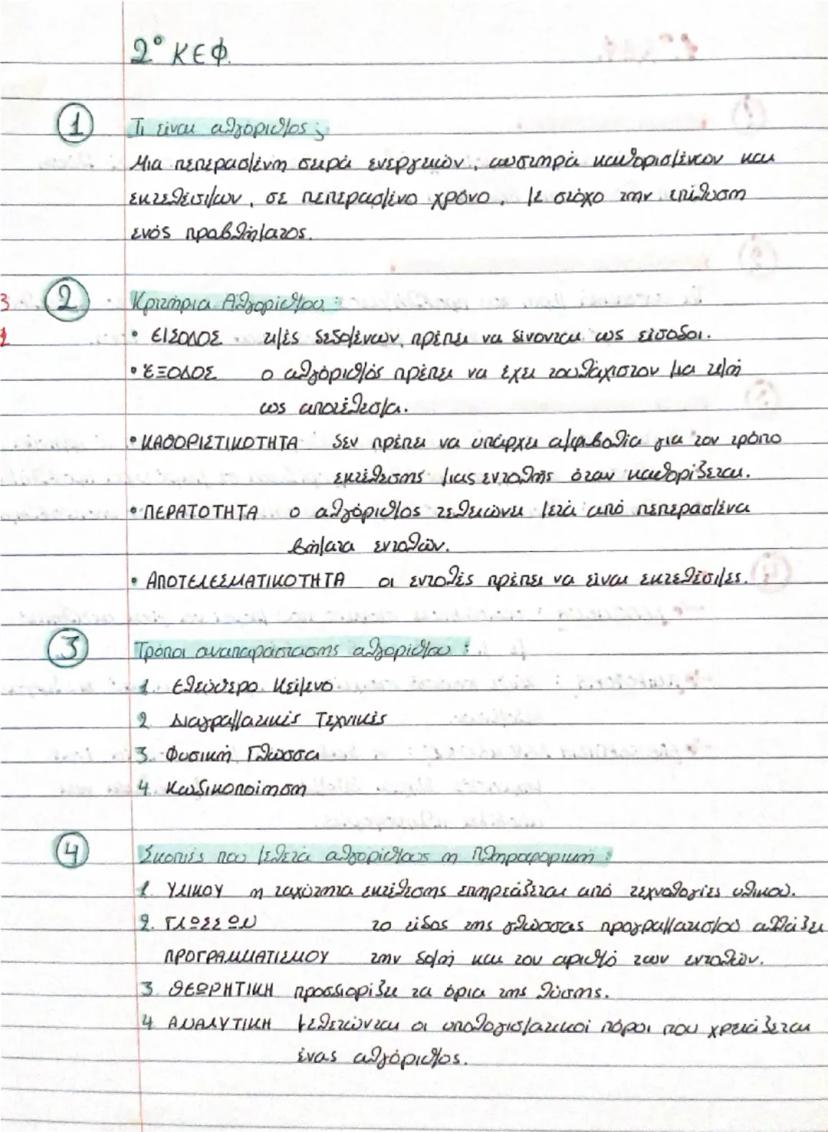 2° ΚΕΦ.
1 Τι είναι αλγόριθμος;
Μια πεπερασμένη σειρά ενεργειών, αυστηρά καθορισμένων και
εκτελέσιμων, σε πεπερασμένο χρόνο, με στόχο την επίλυση
ενός προβλήματος.
2 Κριτήρια Αλγορίθμου:
• ΕΙΣΟΔΟΣ τιμές δεδομένων, πρέπει να δίνονται ως είσοδοι.
• ΕΞΟΔΟΣ ο αλγόριθμος πρέπει να έχει τουλάχιστον μια τιμή
ως αποτέλεσμα.
• ΚΑΘΟΡΙΣΤΙΚΟΤΗΤΑ δεν πρέπει να υπάρχει αμφιβολία για τον τρόπο
εκτέλεσης μιας εντολής όταν καθορίζεται.
• ΠΕΡΑΤΟΤΗΤΑ ο αλγόριθμος τελειώνει μετά από πεπερασμένα
βήματα εντολών.
• ΑΠΟΤΕΛΕΣΜΑΤΙΚΟΤΗΤΑ οι εντολές πρέπει να είναι εκτελέσιμες.
3 Τρόποι αναπαράστασης αλγορίθμου:
1. Ελεύθερο Κείμενο
2. Διαγραμματικές Τεχνικές
3. Φυσική Γλώσσα
4. Κωδικοποίηση
4 Σκοπιές που μελετά αλγορίθμους η Πληροφορική:
1. ΥΛΙΚΟΥ η ταχύτητα εκτέλεσης επηρεάζεται από τεχνολογίες υλικού.
2. ΓΛΩΣΣΩΝ το είδος της γλώσσας προγραμματισμού αλλάζει
ΠΡΟΓΡΑΜΜΑΤΙΣΜΟΥ την δομή και τον αριθμό των εντολών.
3. ΘΕΩΡΗΤΙΚΗ προσδιορίζει τα όρια της λύσης.
4. ΑΝΑΛΥΤΙΚΗ μελετώνται οι υπολογισματικοί πόροι που χρειάζεται
ένας αλγόριθμος.